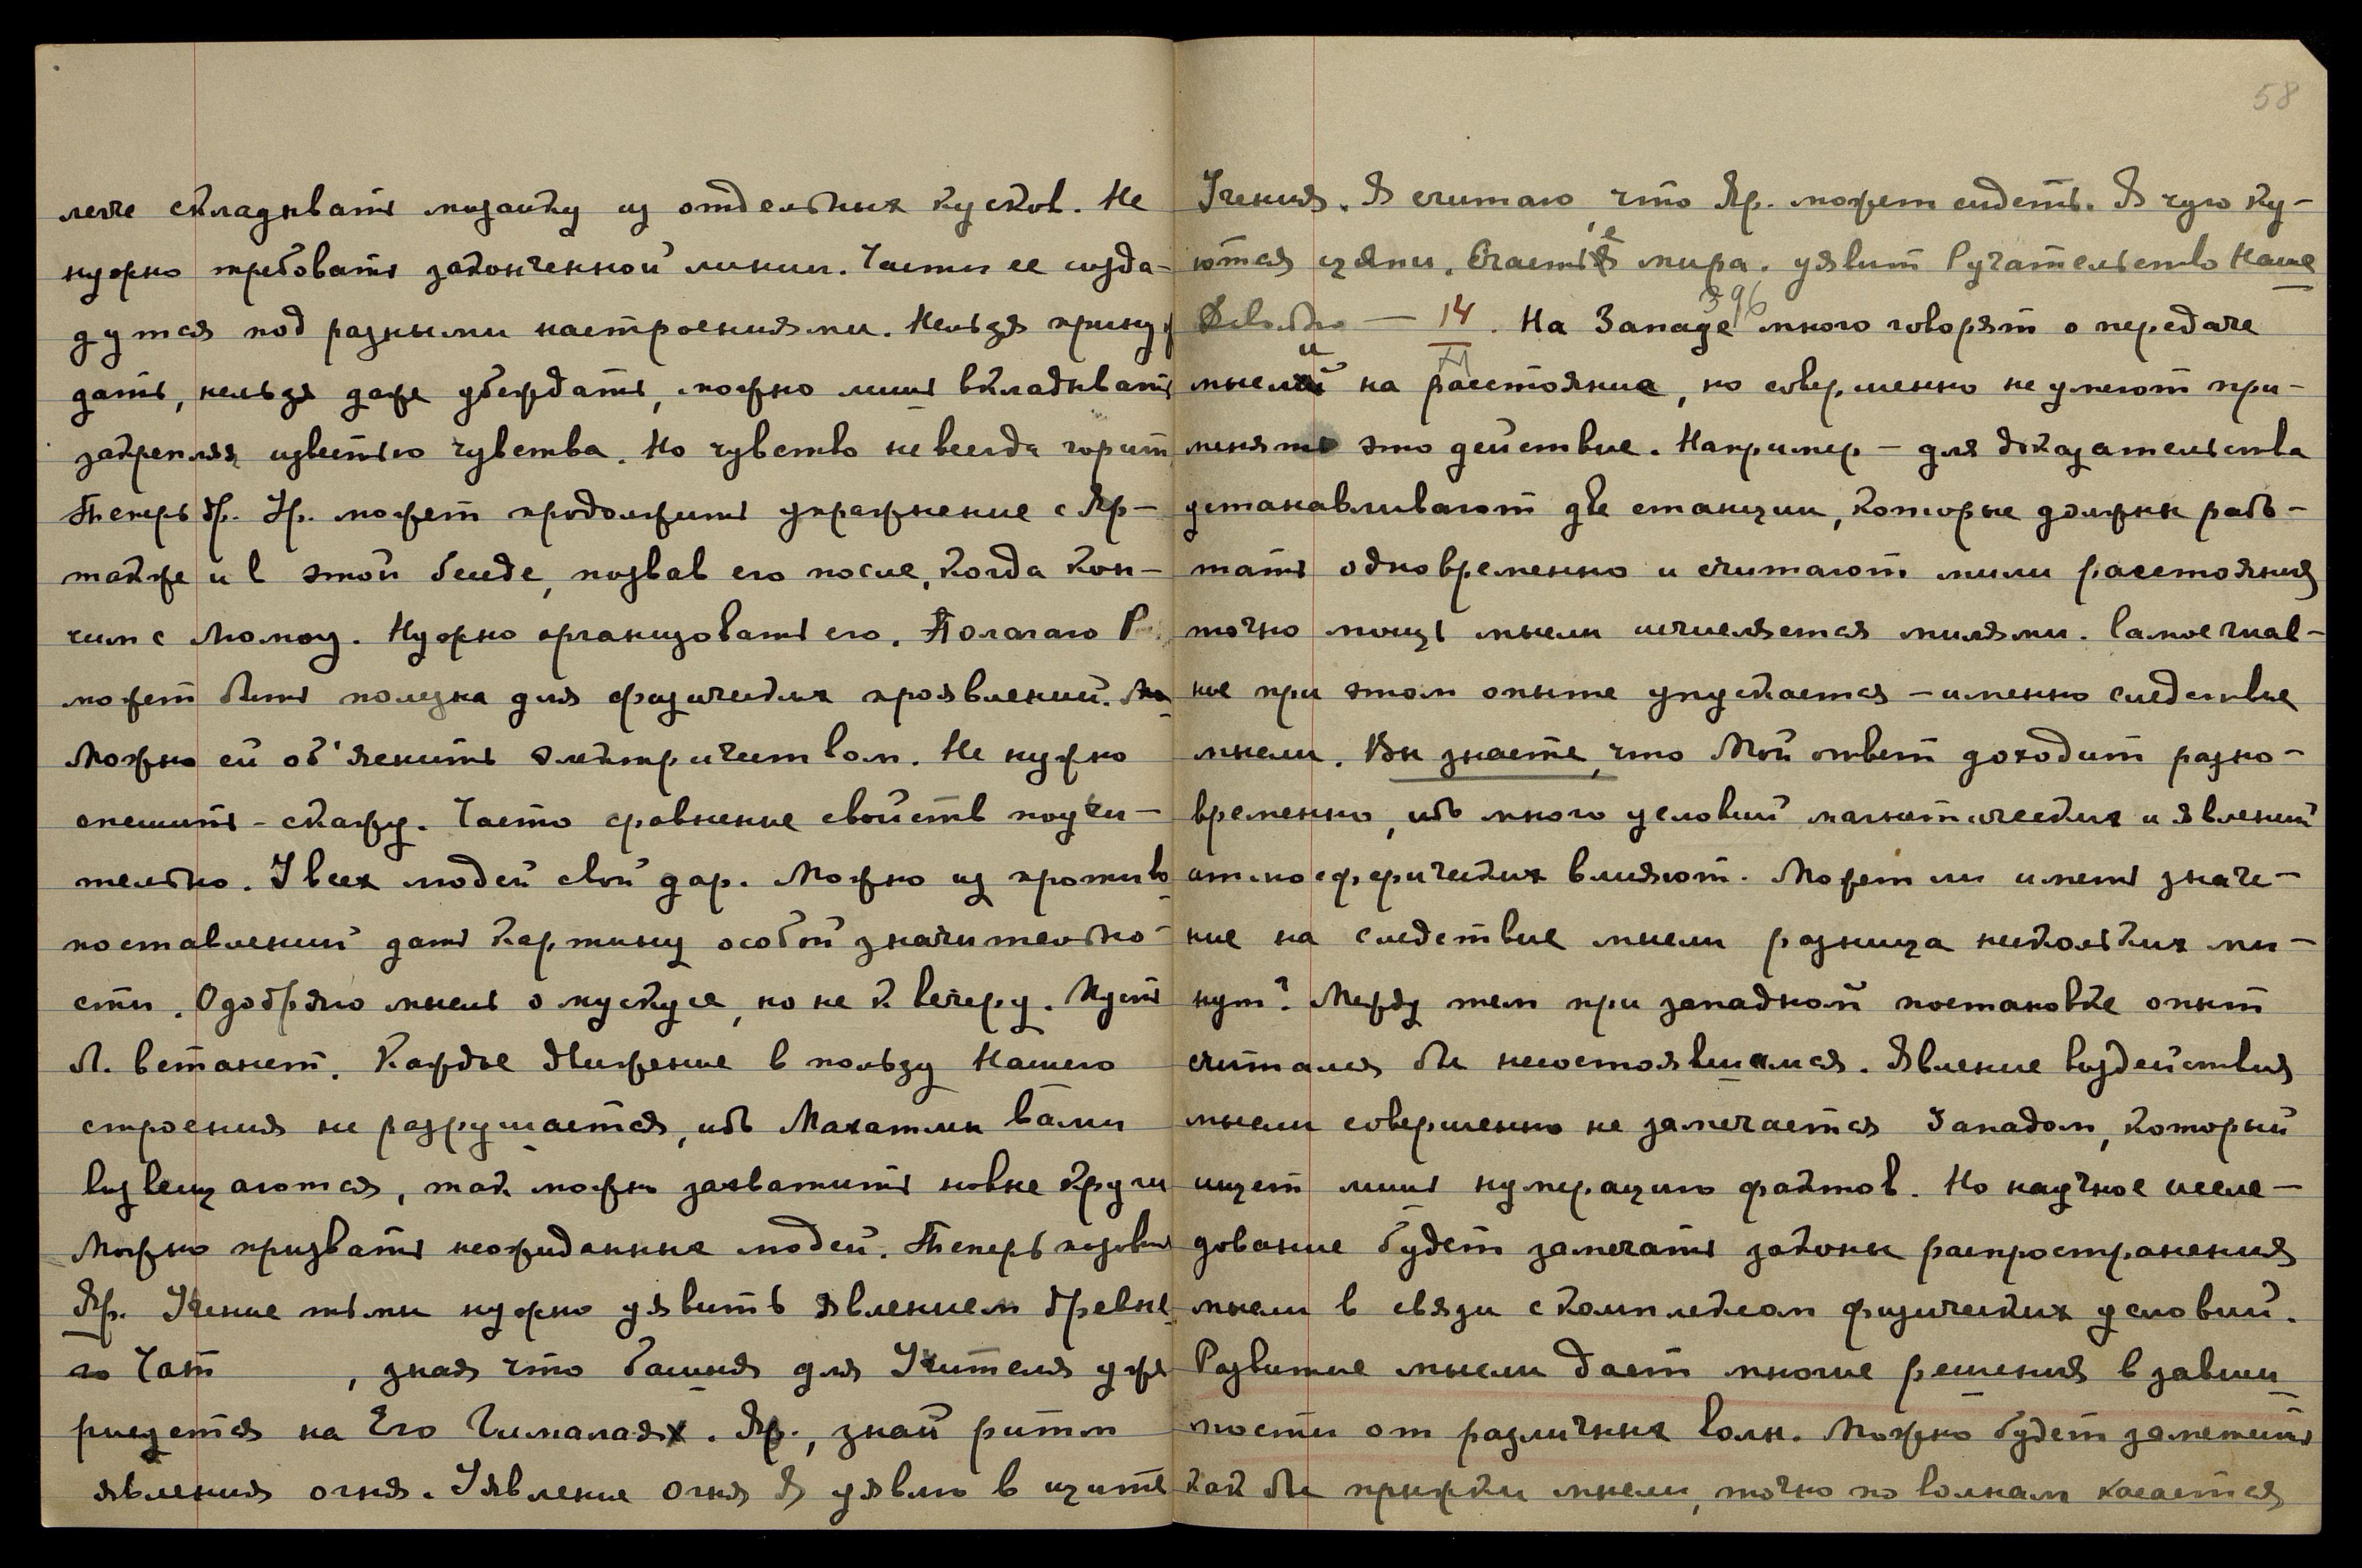 легче складывать мозаику из отдельных кусков. Не
нужно требовать законченной линии. Части ее созда-
дутся под разными настроениями. Нельзя принуж
дать, нельзя даже убеждать, можно лишь вкладывать
закрепляя известью чувства. Но чувство не всегда горит
Теперь Ур. может продолжить упражнение с Яр-
также и в этой беседе, позвав его после, когда кон-
чим с Люмоу. Нужно организовать его. Полагаю Р.
может быть полезна для физических проявлений. Мо
Можно ей об'яснить электричеством. Не нужно
спешить - скажу. Часто сравнение свойств поучи-
тельно. У всех людей свой дар. Можно из противо
поставлений дать картину особой значительно-
сти. Одобряю мысль о мускусе, но не к вечеру. Пусть
Л. встанет. Каждое движение в пользу Нашего
строения не разрушается, ибо Махатмы вами
возвещаются, так можно захватить новые круги
Можно призвать неожиданные людей. Теперь позови
Яр. Учение тьмы нужно уявить явлением древне
го Чат , зная что башня для Учителя уже
рисуется на Его Гималаях. Яр., знай ритм
явления огня. Уявление Огня Я уявлю в щите
58
Учения. Я считаю, что Яр. может сидеть. Я чую ку-
ются цепи. Счастье мира. уявит Ручательство Наше
Довольно — 14. На Западе много говорят о передаче
396
VI
мысли на расстояние, но совершенно не умеют при-
менять это действие. Например - для доказательства
устанавливают две станции, которые должны рабо-
тать одновременно и считают мили расстояния
точно мощь мысли исчисляется милями. Самое глав-
ное при этом опыте упускается - именно следствие
мысли. Вы знаете, что Мой ответ доходит разно-
временно, ибо много условий магнетических и явлений
атмосферических влияют. Может ли иметь значе-
ние на следствие мысли разница нескольких ми-
нут? Между тем при западной постановке опыт
считался бы несостоявшимся. Явление воздействия
мысли совершенно не замечается Западом, который
ищет лишь нумерацию фактов. Но научное иссле-
дование будет замечать законы распространения
мысли в связи с комплексом физических условий.
Развитие мысли дает многие решения в зависи
мости от различных волн. Можно будет заметить
как бы прыжки мысли, точно по волнам касается